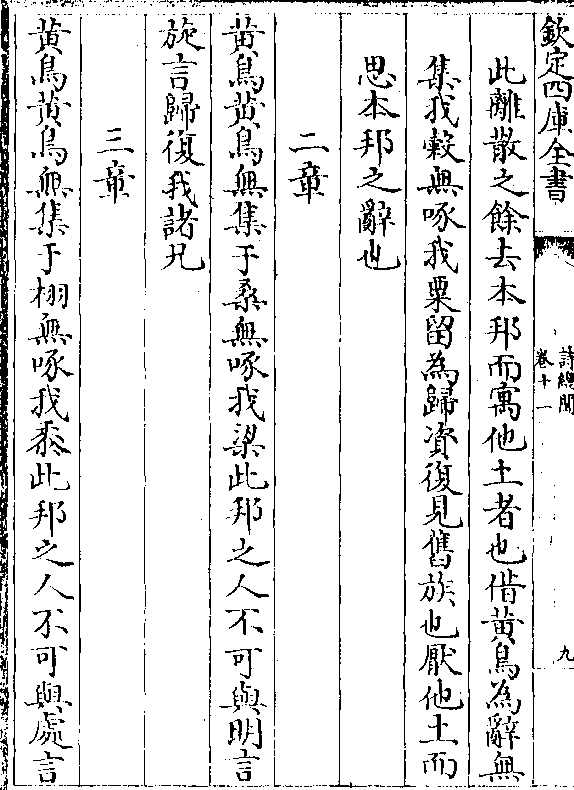 欽定四庫全書
詩總聞
卷十一
九
此離散之餘去本邦而寓他土者也借黄鳥為辭無
集我榖無啄我粟留為歸資復見舊族也厭他土而
思本邦之辭也
二章
黄鳥黄鳥無集于桑無啄我梁此邦之人不可與明言
旋言歸復我諸兄
三章
黄鳥黄鳥無集于栩無啄我黍此邦之人不可與處言